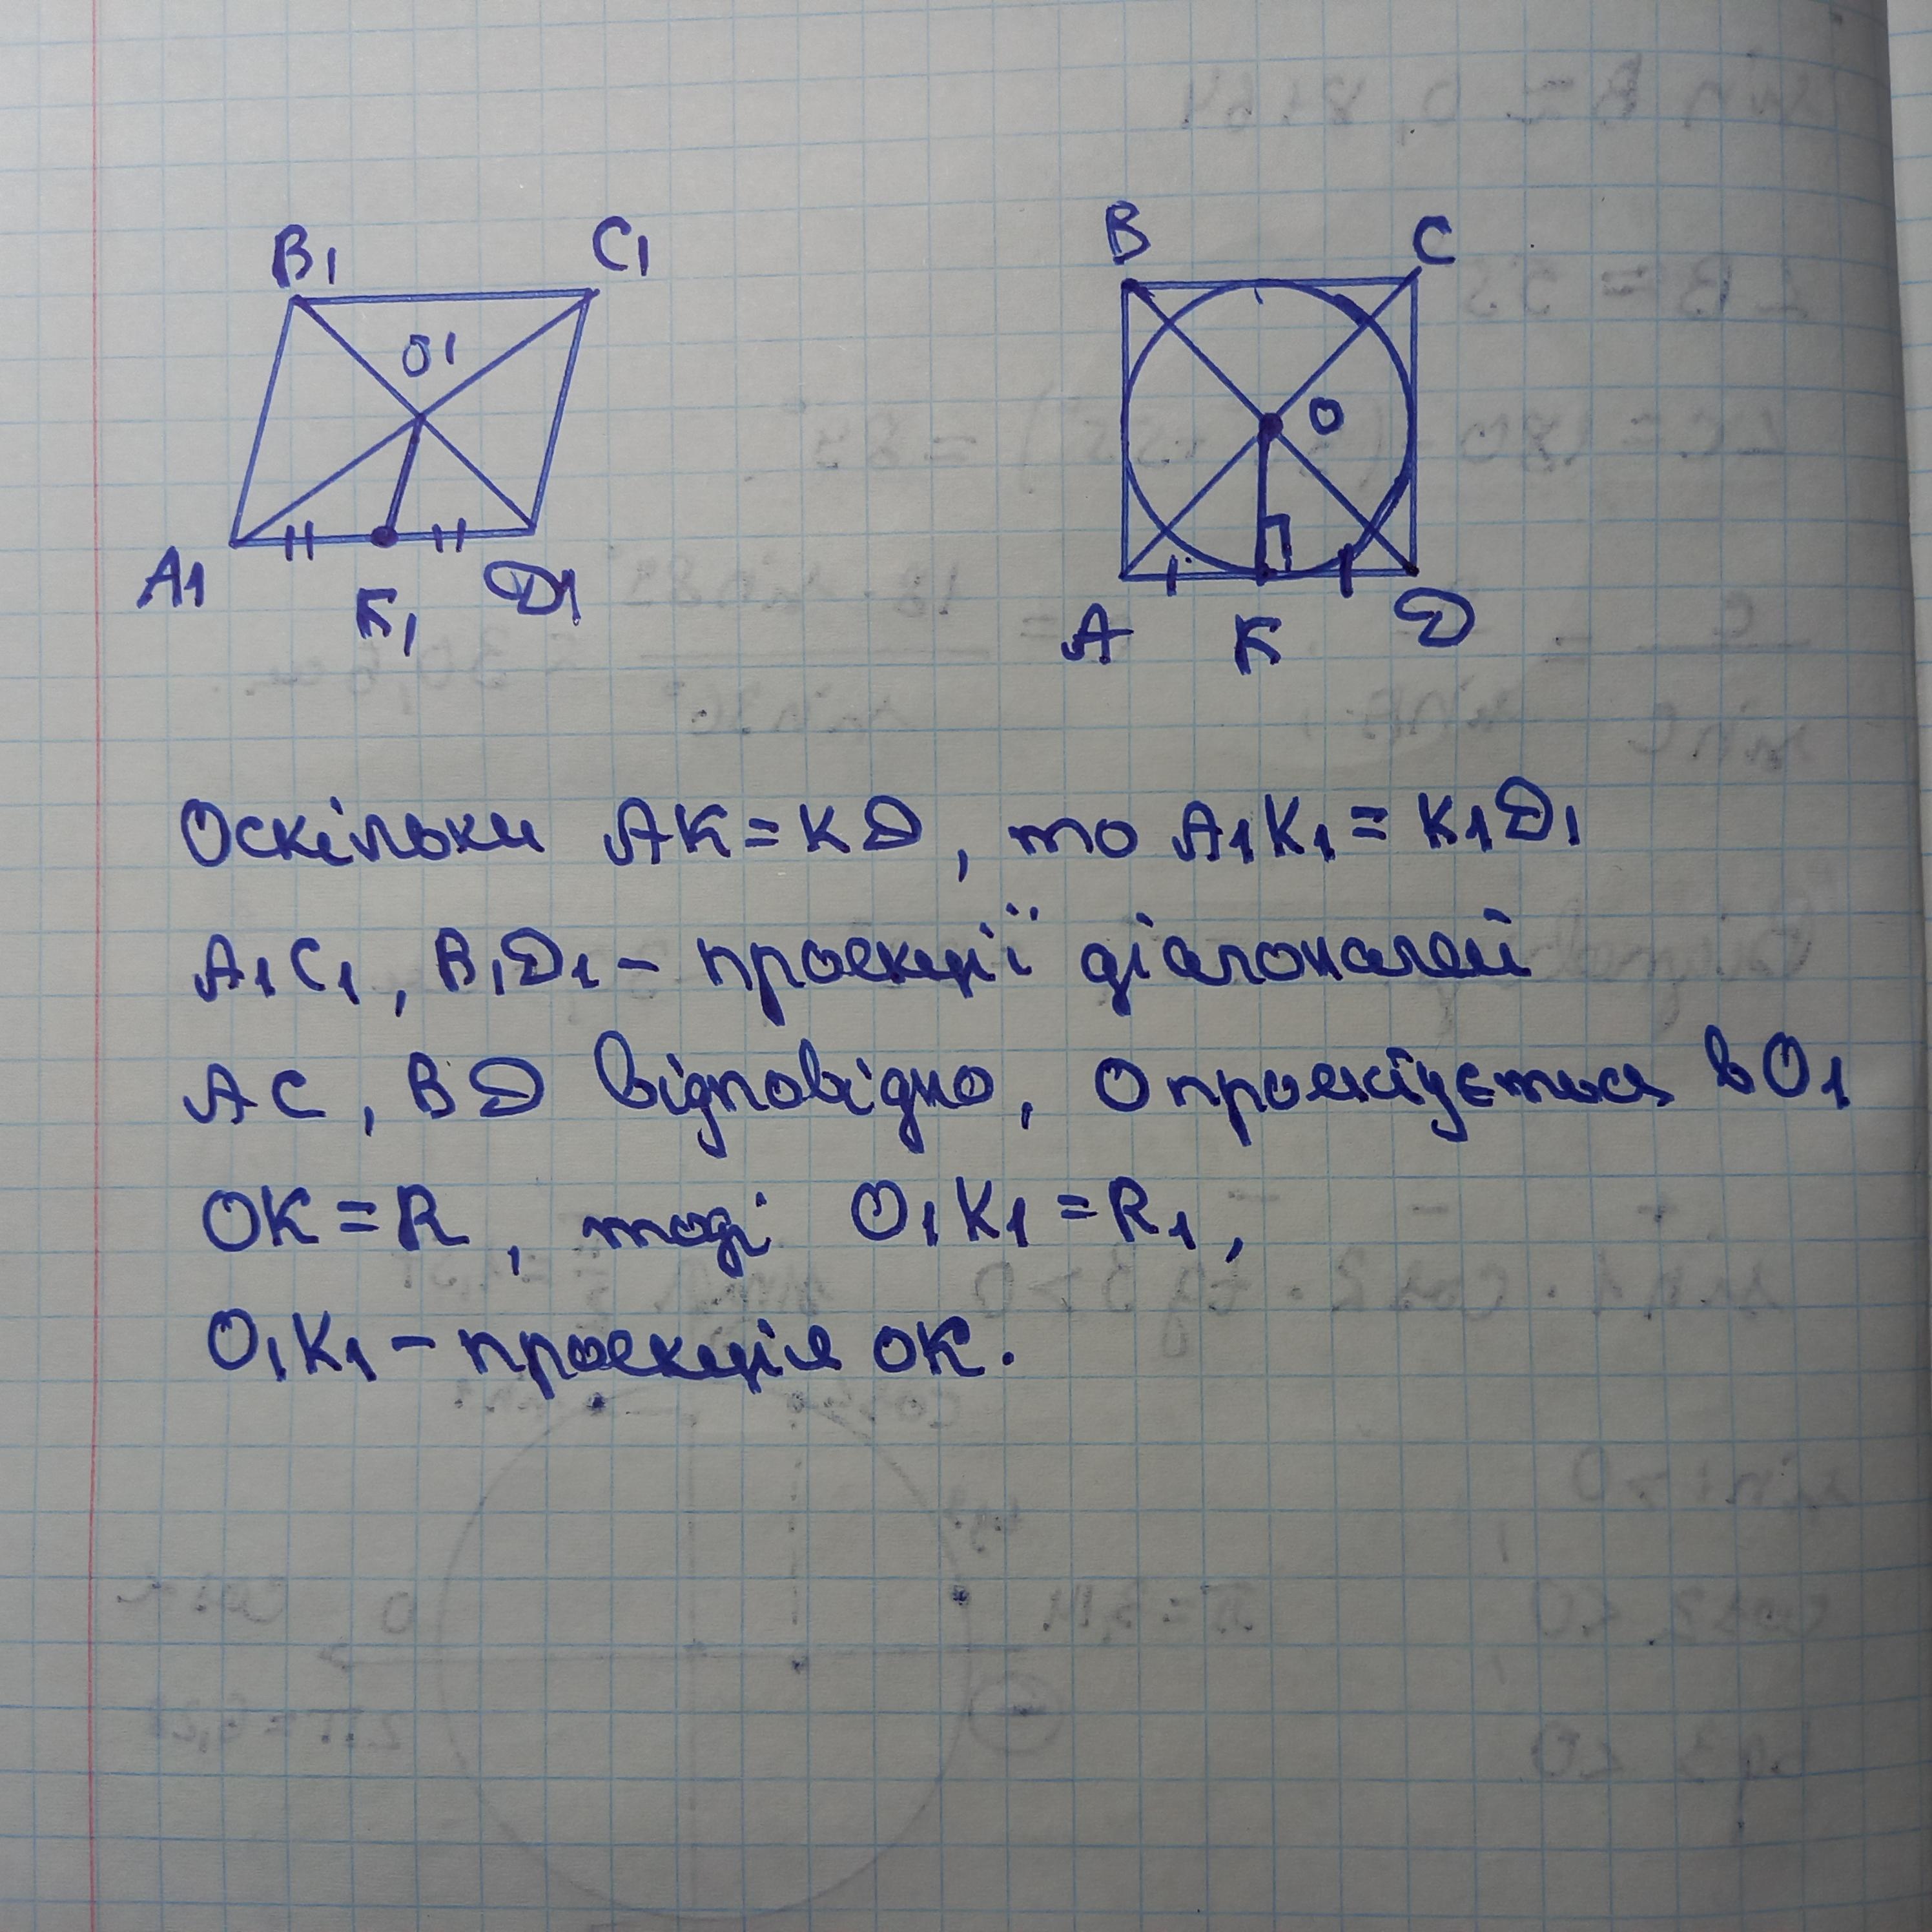 B1 C1 B C
O1 O
A1 K1 D1 A K D
Оскільки AK = KD, то A1K1 = K1D1
A1C1, B1D1 – проекції діагоналей
AC, BD відповідно, O проектується в O1
OK = R, тоді O1K1 = R1,
O1K1 – проекція OK.